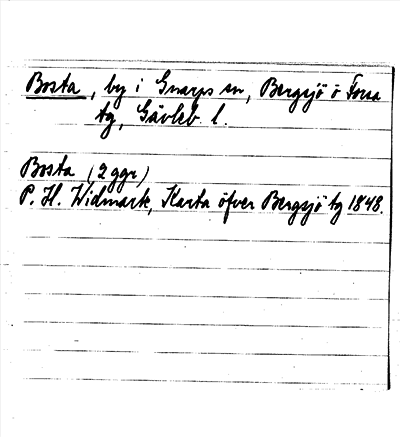 Bosta, by i Gnarps sn, Bergsjö o Forsa
tg, Gävleb. l.
Bosta (2 ggr)
P. H. Widmark, Karta öfver Bergsjö tg 1848.